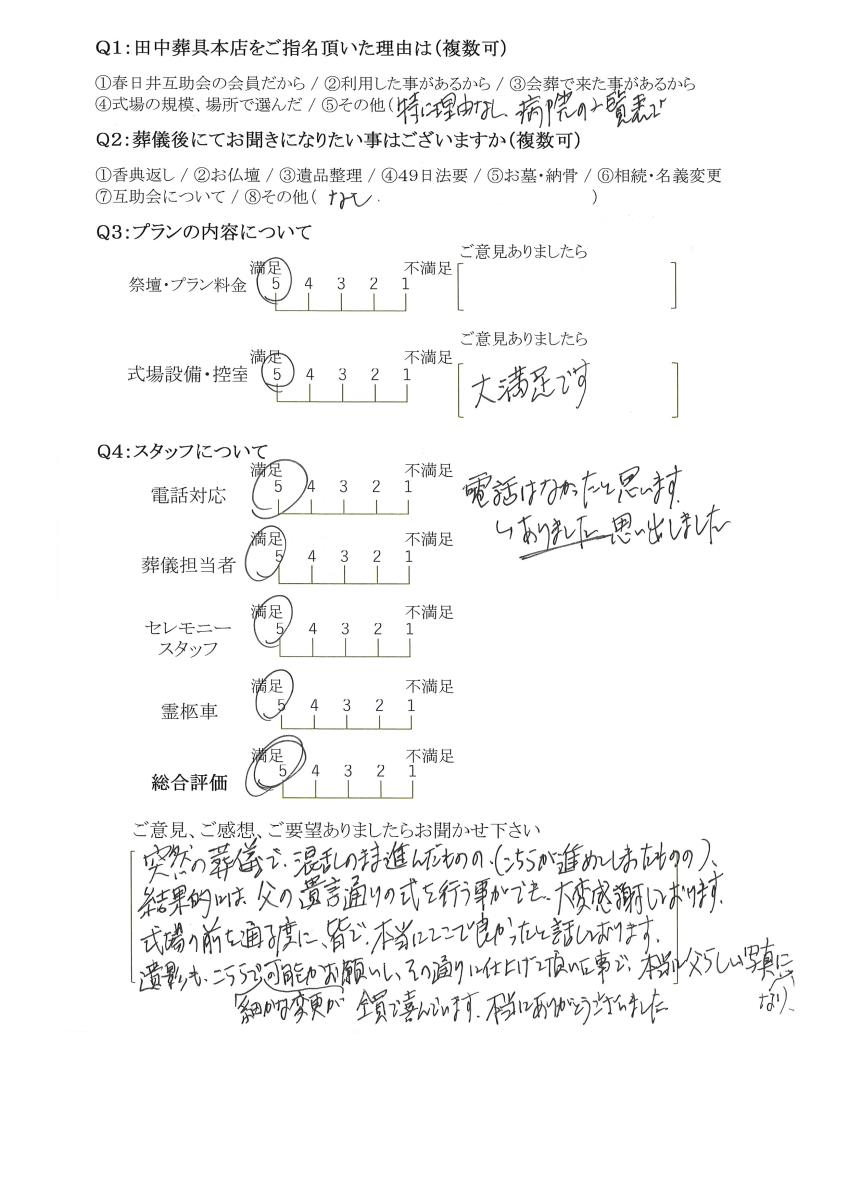 Q1:田中葬具本店をご指名頂いた理由は(複数可)
①春日井互助会の会員だから / ②利用した事があるから / ③会葬で来た事があるから
④式場の規模、場所で選んだ / ⑤その他( 特に理由なし 病院の一覧表で
Q2:葬儀後にてお聞きになりたい事はございますか(複数可)
①香典返し / ②お仏壇 / ③遺品整理 / ④49日法要 / ⑤お墓・納骨 / ⑥相続・名義変更
⑦互助会について / ⑧その他( なし )
Q3:プランの内容について
ご意見ありましたら
満足 不満足
祭壇・プラン料金 5 4 3 2 1
ご意見ありましたら
満足 不満足
式場設備・控室 5 4 3 2 1 大満足です
Q4:スタッフについて
満足 不満足
電話対応 5 4 3 2 1 電話はなかったと思います。
↳ありました 思い出しました
満足 不満足
葬儀担当者 5 4 3 2 1
満足 不満足
セレモニー 5 4 3 2 1
スタッフ
満足 不満足
霊柩車 5 4 3 2 1
満足 不満足
総合評価 5 4 3 2 1
ご意見、ご感想、ご要望ありましたらお聞かせ下さい
突然の葬儀で、混乱のまま進んだものの、(こちらが進めてしまたものの)、
結果的には、父の遺言通りの式を行う事ができ、大変感謝しております。
式場の前を通る度に、皆で、本当にここで良かったと話しております。
遺影も、こちらで可能かお願いし、その通りに仕上げて頂いた事で、本当に父らしい写真に
なり、
細かな変更が 全員で喜んでいます。本当にありがとうございました